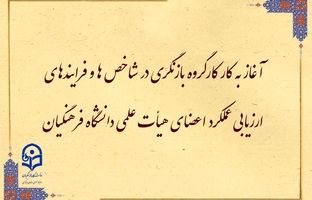 آغاز به کار کارگروه بازنگری در شاخص ها و فرایندهای
ارزیابی عملکرد اعضای هیأت علمی دانشگاه فرهنگیان